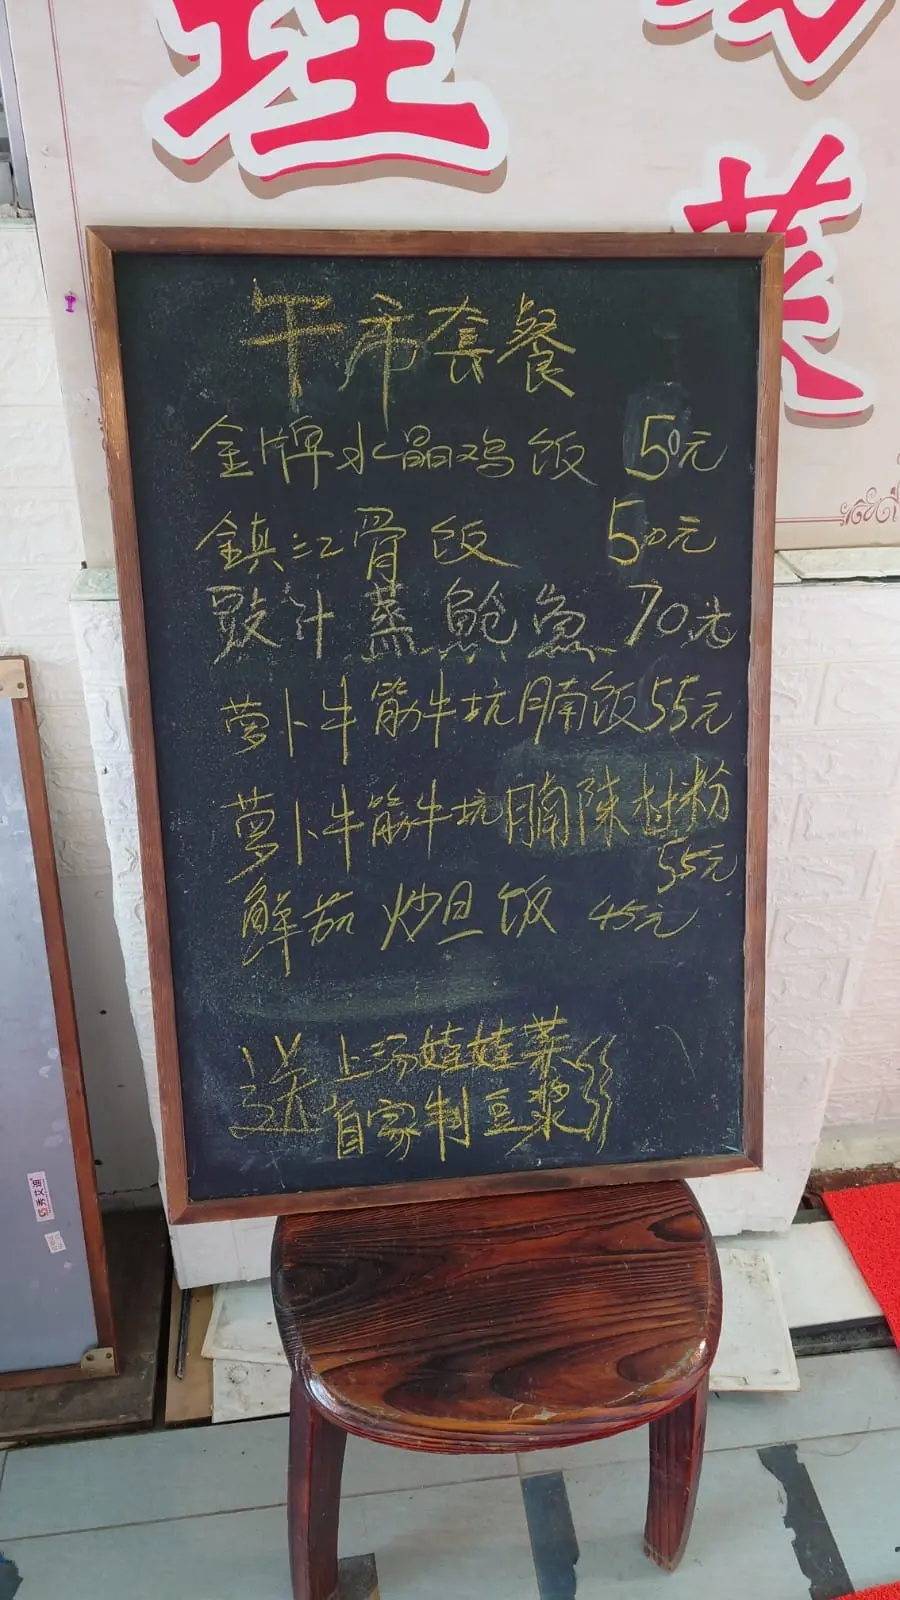 理
菜
午市套餐
金牌水晶鸡饭 50元
鎮江骨饭 50元
豉汁蒸鲍魚 70元
萝卜牛筋牛坑腩饭55元
萝卜牛筋牛坑腩陳村粉
55元
鲜茄炒旦饭 45元
送 上汤娃娃菜
自家制豆浆